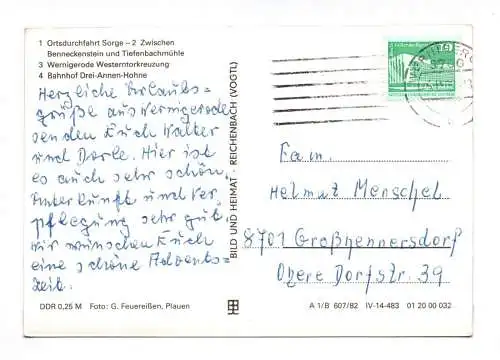 1 Ortsdurchfahrt Sorge – 2 Zwischen
Benneckenstein und Tiefenbachmühle
3 Wernigerode Westerntorkreuzung
4 Bahnhof Drei-Annen-Hohne
Herzliche Urlaubs=
grüße aus Wernigerode
senden Euch Walter
und Dorle. Hier ist
es auch sehr schön.
Unterkunft und Ver
pflegung sehr gut
wir wünschen Euch
eine schöne Advents=
zeit.
DDR 0,25 M Foto: G. Feuereißen, Plauen
BILD UND HEIMAT · REICHENBACH (VOGTL)
10
Fam.
Helmat Menschel
8701 Großhennersdorf
Obere Dorfstr. 39
A 1/B 607/82 IV-14-483 01 20 00 032